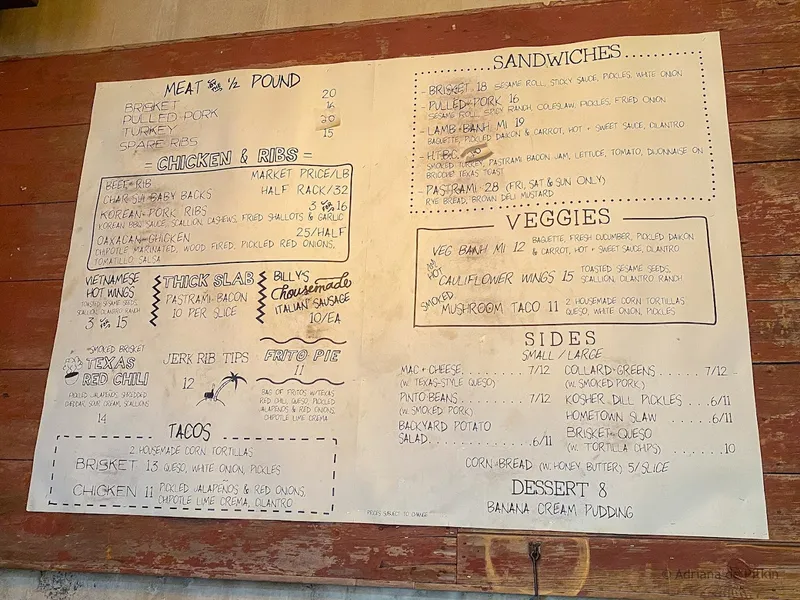 MEAT 1/2 POUND
BRISKET 20
PULLED PORK 16
TURKEY 20
SPARE RIBS 15
= CHICKEN & RIBS =
BEEF RIB MARKET PRICE/LB
CHAR SIU BABY BACKS HALF RACK/32
KOREAN PORK RIBS 3 FOR 16
KOREAN BBQ SAUCE, SCALLION, CASHEWS, FRIED SHALLOTS & GARLIC
OAXACAN CHICKEN 25/HALF
CHIPOTLE MARINATED, WOOD FIRED, PICKLED RED ONIONS,
TOMATILLO SALSA
VIETNAMESE
HOT WINGS
TOASTED SESAME SEEDS,
SCALLION, CILANTRO RANCH
3 FOR 15
THICK SLAB
PASTRAMI BACON
10 PER SLICE
BILLY'S
Chousemade
ITALIAN SAUSAGE
10/EA
SMOKED BRISKET
TEXAS
RED CHILI
PICKLED JALAPEÑOS, SHREDDED
CHEDDAR, SOUR CREAM, SCALLIONS
14
JERK RIB TIPS
12
FRITO PIE
11
BAG OF FRITOS W/TEXAS
RED CHILI, QUESO, PICKLED
JALAPEÑOS & RED ONIONS,
CHIPOTLE LIME CREMA
TACOS
2 HOUSEMADE CORN TORTILLAS
BRISKET 13 QUESO, WHITE ONION, PICKLES
CHICKEN 11 PICKLED JALAPEÑOS & RED ONIONS,
CHIPOTLE LIME CREMA, CILANTRO
PRICES SUBJECT TO CHANGE
SANDWICHES
- BRISKET 18 SESAME ROLL, STICKY SAUCE, PICKLES, WHITE ONION
- PULLED PORK 16
SESAME ROLL, SPICY RANCH, COLESLAW, PICKLES, FRIED ONION
- LAMB BANH MI 19
BAGUETTE, PICKLED DAIKON & CARROT, HOT + SWEET SAUCE, CILANTRO
- H.T.B.C.
SMOKED TURKEY, PASTRAMI BACON JAM, LETTUCE, TOMATO, DIJONNAISE ON
BRIOCHE TEXAS TOAST
- PASTRAMI 28 (FRI, SAT & SUN ONLY)
RYE BREAD, BROWN DELI MUSTARD
VEGGIES
VEG BANH MI 12 BAGUETTE, FRESH CUCUMBER, PICKLED DAIKON
& CARROT, HOT + SWEET SAUCE, CILANTRO
HOT
CAULIFLOWER WINGS 15 TOASTED SESAME SEEDS,
SCALLION, CILANTRO RANCH
SMOKED
MUSHROOM TACO 11 2 HOUSEMADE CORN TORTILLAS
QUESO, WHITE ONION, PICKLES
SIDES
SMALL/LARGE
MAC + CHEESE 7/12
(W. TEXAS-STYLE QUESO)
PINTO BEANS 7/12
(W. SMOKED PORK)
BACKYARD POTATO
SALAD 6/11
COLLARD GREENS 7/12
(W. SMOKED PORK)
KOSHER DILL PICKLES 6/11
HOMETOWN SLAW 6/11
BRISKET QUESO
(W. TORTILLA CHIPS) 10
CORN BREAD (W. HONEY BUTTER) 5/SLICE
DESSERT 8
BANANA CREAM PUDDING